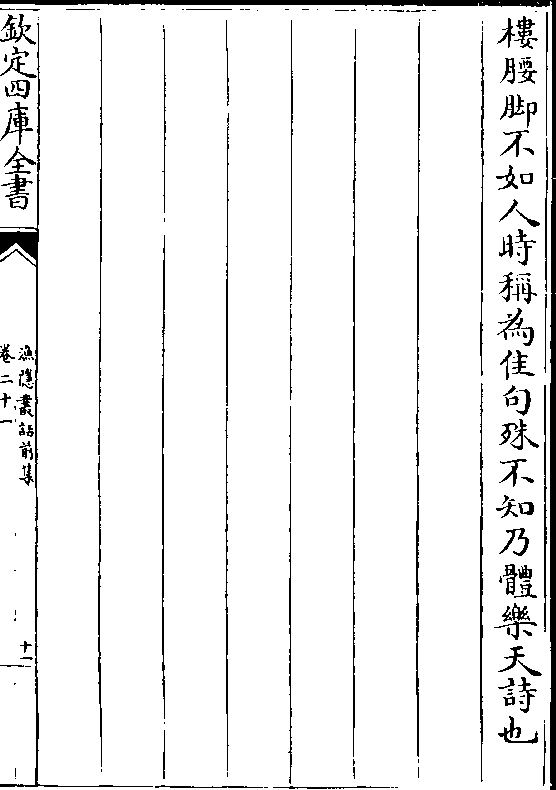 樓腰脚不如人時稱為佳句殊不知乃體樂天詩也
欽定四庫全書
漁隱叢話前集
卷二十一
十一